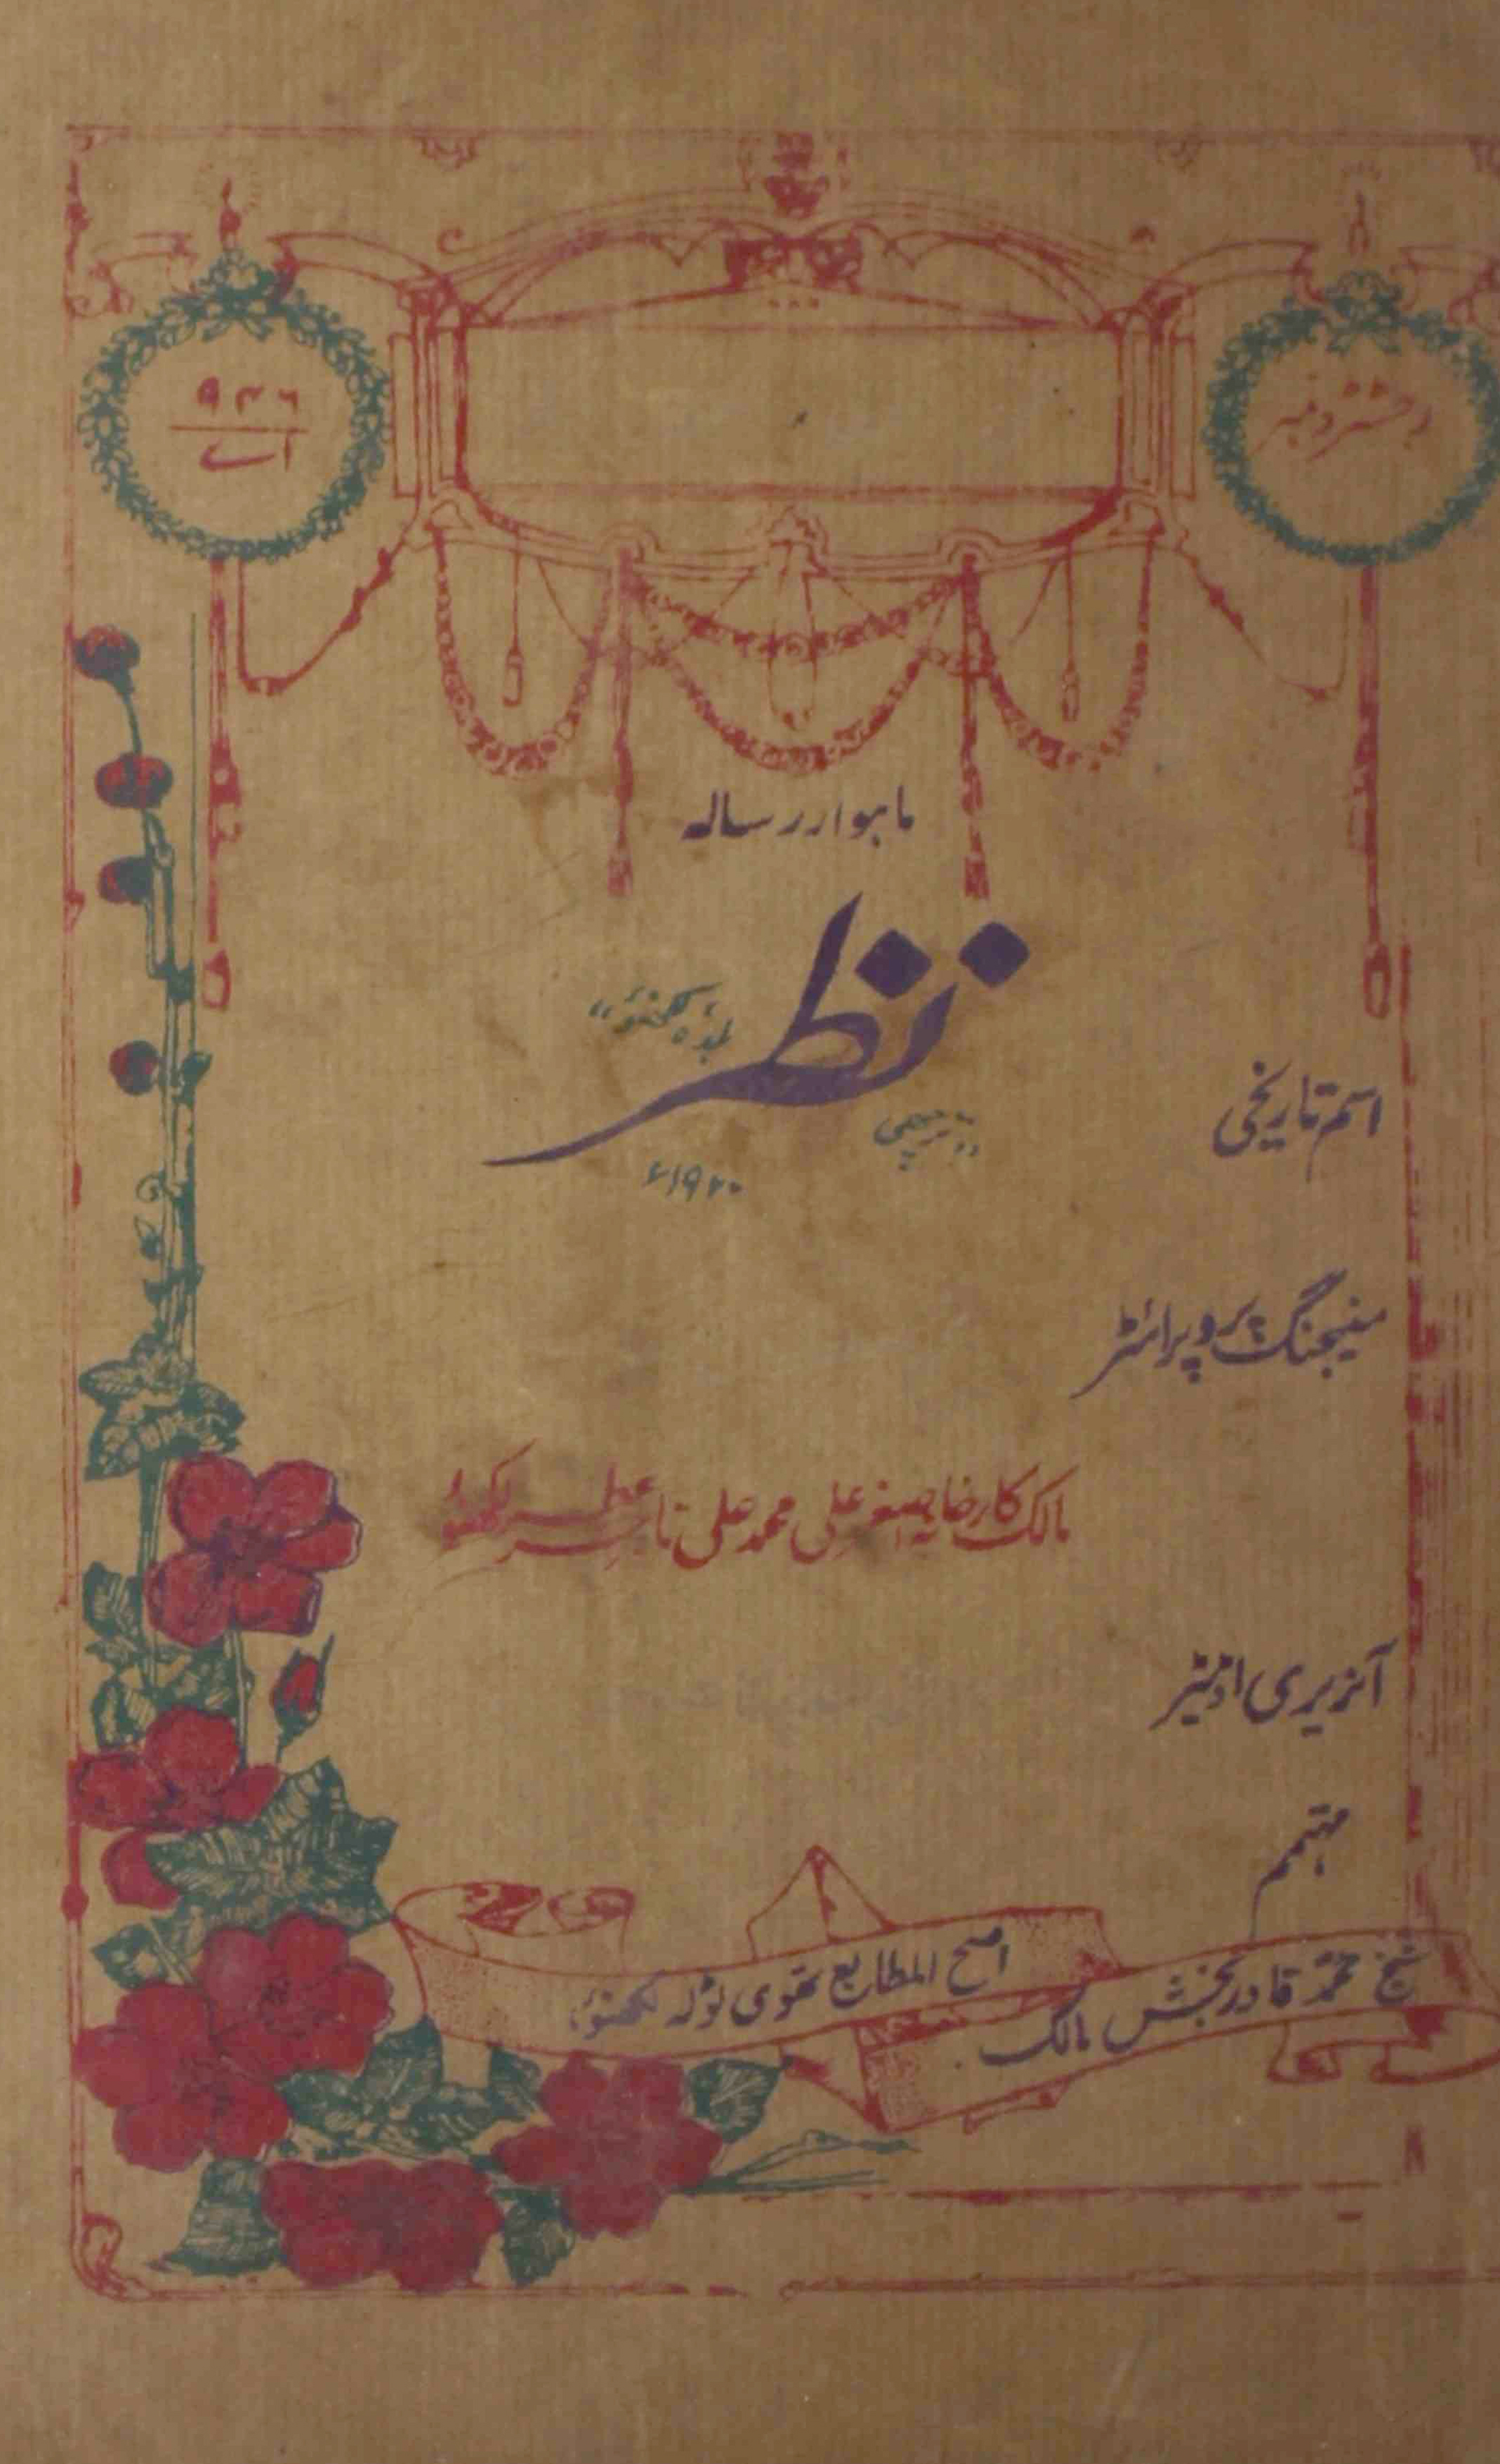 رجسٹرڈ نمبر
۹۳۶
اے
ماہوار رسالہ
نظر
لکھنؤ"
"ترچھی
۱۹۲۰ء
اسم تاریخی
منیجنگ پروپرائٹر
مالک کارخانہ اصغر علی محمد علی تاجر عطر لکھنؤ
آنریری اڈیٹر
مہتمم
شیخ محمد قادر بخش مالک
اصح المطابع تقوی ٹولہ لکھنؤ